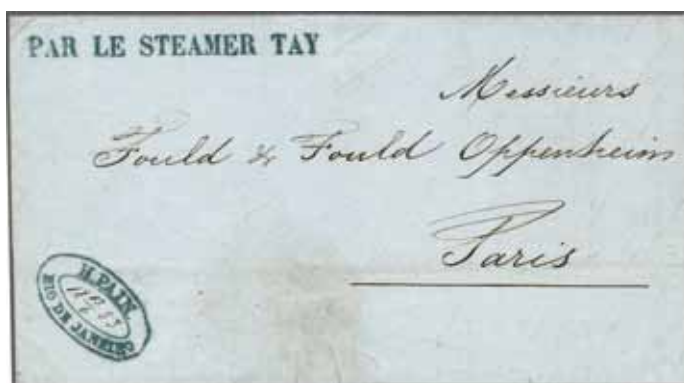 PAR LE STEAMER TAY
Messieurs
Fould & Fould Oppenheim
Paris
H. PAIN
RIO DE JANEIRO